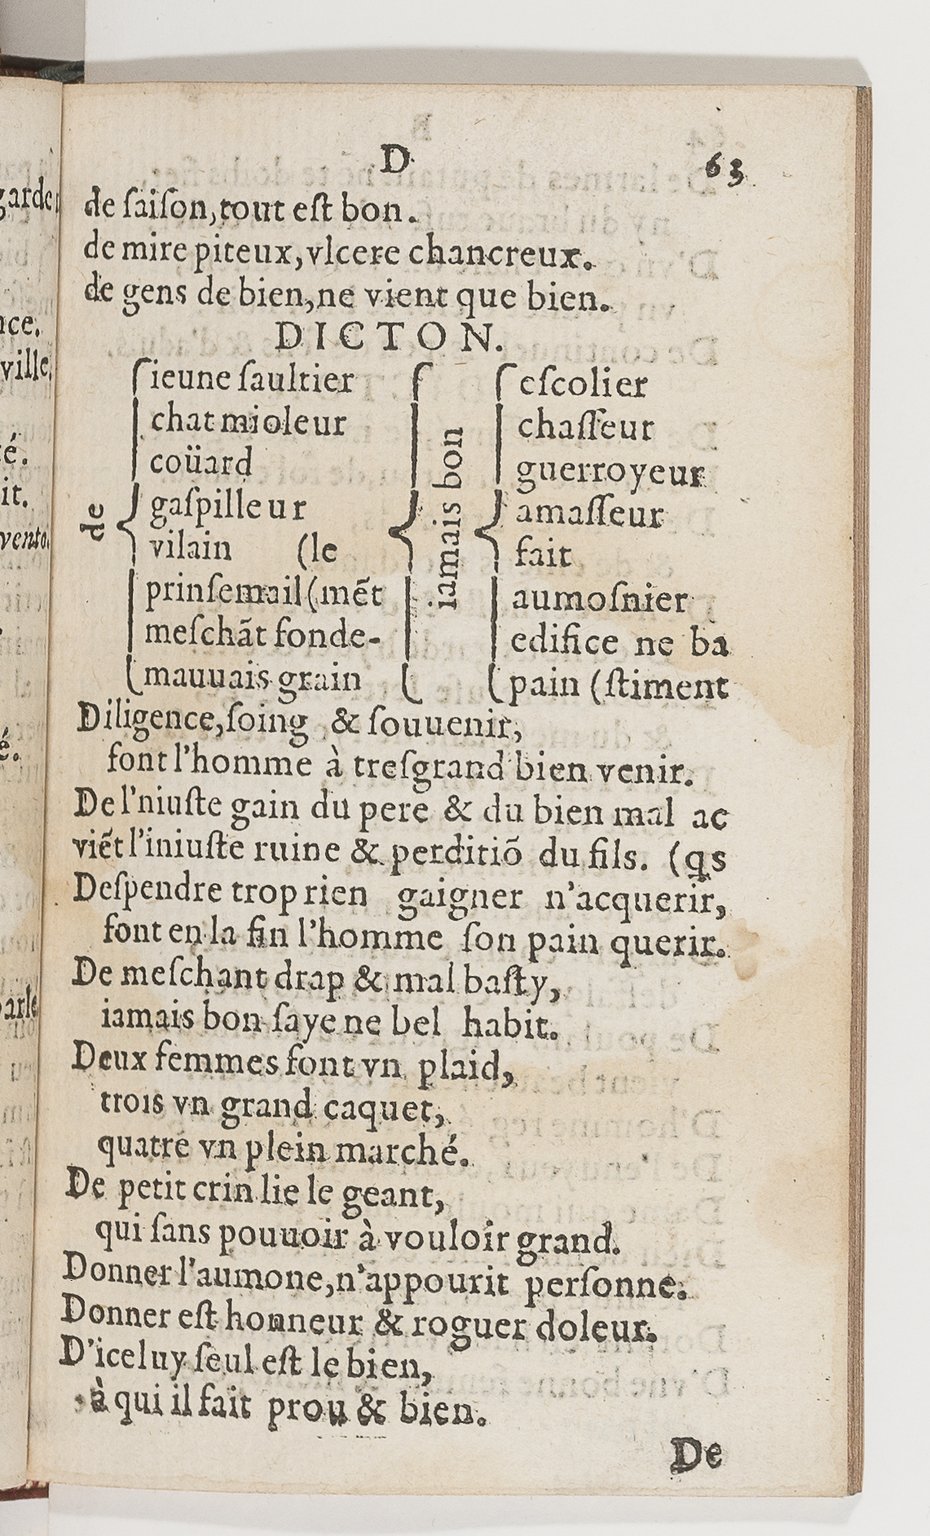 garde
nce.
ville.
té.
it.
vento.
é.
parle
D
63
de saison, tout est bon.
de mire piteux, vlcere chancreux.
de gens de bien, ne vient que bien.
DICTON.
de
ieune saultier
chat mioleur
coüard
gaspilleur
vilain (le
prinsemail (mẽt
meschãt fonde-
mauuais grain
iamais bon
escolier
chasseur
guerroyeur
amasseur
fait
aumosnier
edifice ne ba
pain (stiment
Diligence, soing & souuenir,
font l'homme à tresgrand bien venir.
De l'niuste gain du pere & du bien mal ac
viẽt l'iniuste ruine & perditiõ du fils. (qs
Despendre trop rien gaigner n'acquerir,
font en la fin l'homme son pain querir.
De meschant drap & mal basty,
iamais bon saye ne bel habit.
Deux femmes font vn plaid,
trois vn grand caquet,
quatre vn plein marché.
De petit crin lie le geant,
qui sans pouuoir à vouloir grand.
Donner l'aumone, n'appourit personne.
Donner est honneur & roguer doleur.
D'iceluy seul est le bien,
à qui il fait prou & bien.
De